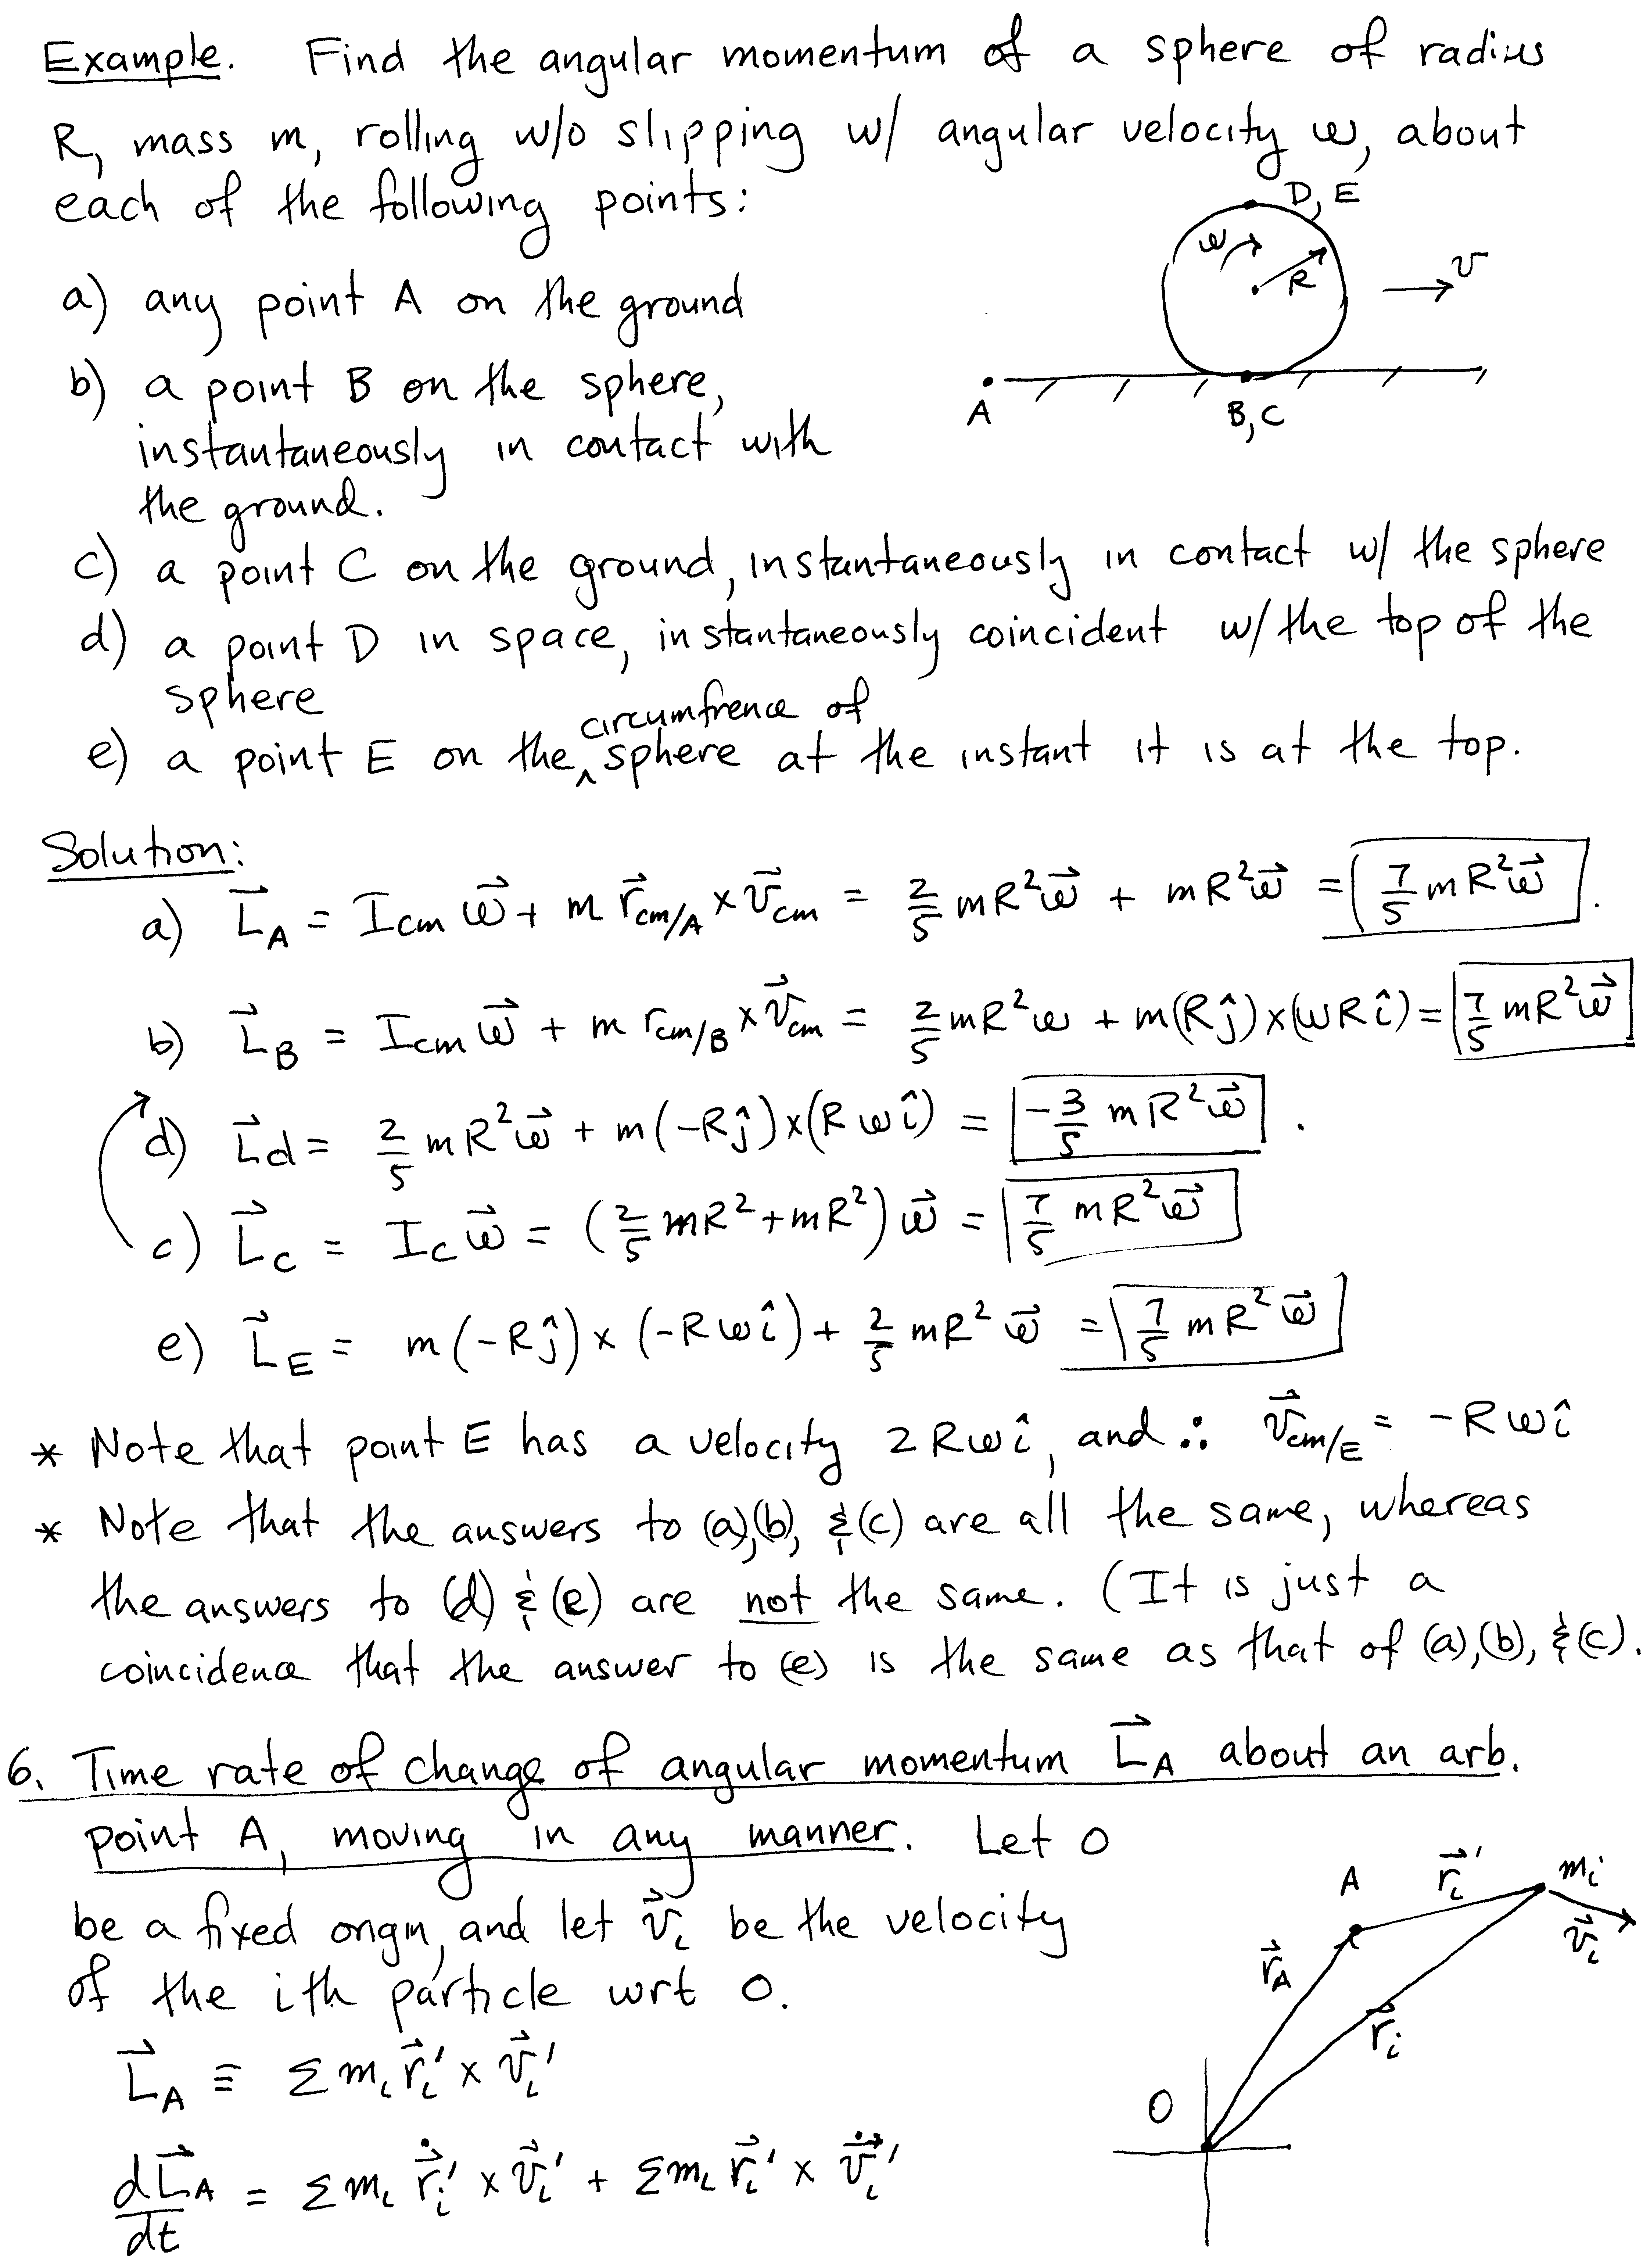 Example. Find the angular momentum of a sphere of radius
R, mass m, rolling w/o slipping w/ angular velocity ω, about
each of the following points:
D, E
ω
R
v
a) any point A on the ground
b) a point B on the sphere,
A
B, C
instantaneously in contact with
the ground.
c) a point C on the ground, instantaneously in contact w/ the sphere
d) a point D in space, instantaneously coincident w/ the top of the
sphere
circumfrence of
e) a point E on the ^ sphere at the instant it is at the top.
Solution:
a) L⃗_A = I_cm ω⃗ + m r⃗_cm/A × v⃗_cm = 2/5 mR²ω⃗ + mR²ω⃗ = 7/5 mR²ω⃗.
b) L⃗_B = I_cm ω⃗ + m r_cm/B × v⃗_cm = 2/5 mR²ω + m(Rĵ)×(ωRî) = 7/5 mR²ω⃗
d) L⃗d = 2/5 mR²ω⃗ + m(-Rĵ)×(Rωî) = -3/5 mR²ω⃗.
c) L⃗_C = I_C ω⃗ = (2/5 mR² + mR²) ω⃗ = 7/5 mR²ω⃗
e) L⃗_E = m(-Rĵ) × (-Rωî) + 2/5 mR² ω⃗ = 7/5 mR² ω⃗
* Note that point E has a velocity 2Rωî, and ∴ v⃗_cm/E = -Rωî
* Note that the answers to (a),(b), &(c) are all the same, whereas
the answers to (d) & (e) are not the same. (It is just a
coincidence that the answer to (e) is the same as that of (a),(b), &(c).
6. Time rate of change of angular momentum L⃗_A about an arb.
point A, moving in any manner. Let O
be a fixed origin, and let v⃗_i be the velocity
of the ith particle wrt O.
A
r⃗_i'
m_i
v⃗_i
r⃗_A
r⃗_i
O
L⃗_A ≡ Σ m_i r⃗_i' × v⃗_i'
dL⃗_A/dt = Σ m_i r⃗̇_i' × v⃗_i' + Σ m_i r⃗_i' × v⃗̇_i'